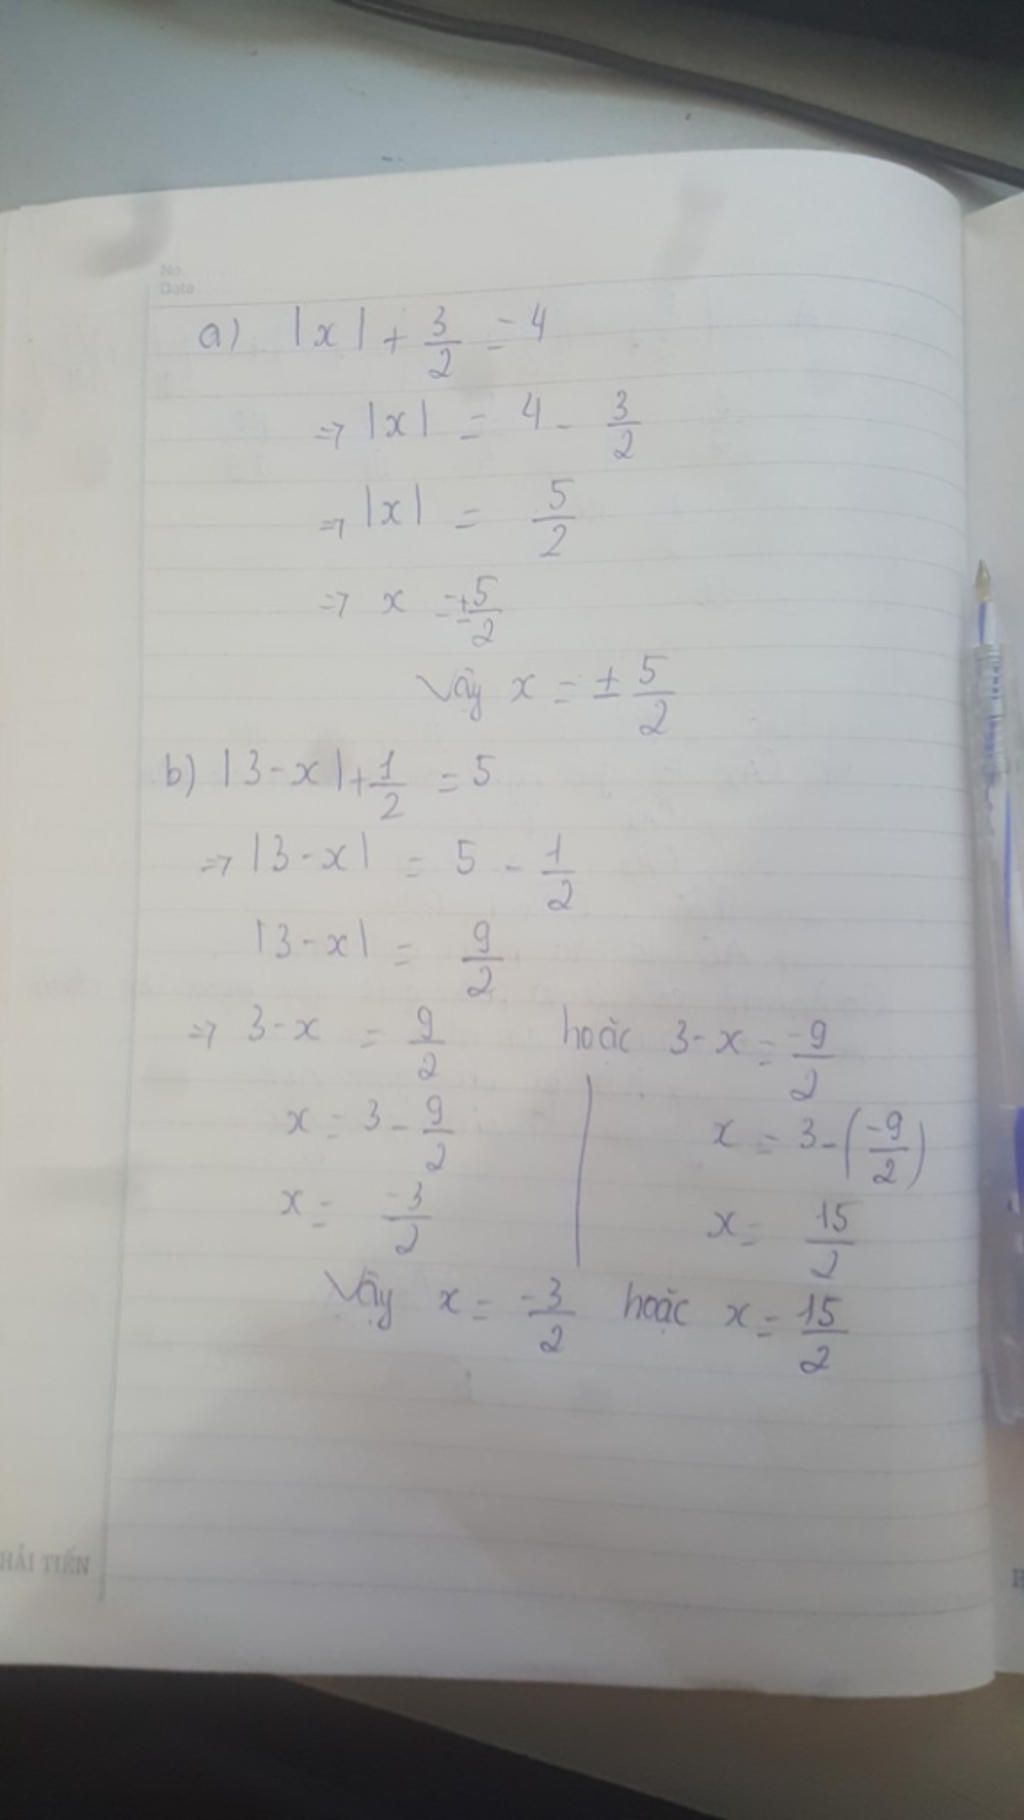 No.
Date
a) |x| + 3/2 = 4
=> |x| = 4 - 3/2
=> |x| = 5/2
=> x = ±5/2
Vậy x = ± 5/2
b) |3-x| + 1/2 = 5
=> |3-x| = 5 - 1/2
|3-x| = 9/2
=> 3-x = 9/2 hoặc 3-x = -9/2
x = 3 - 9/2 | x = 3 - (-9/2)
x = -3/2 | x = 15/2
Vậy x = -3/2 hoặc x = 15/2
HẢI TIẾN